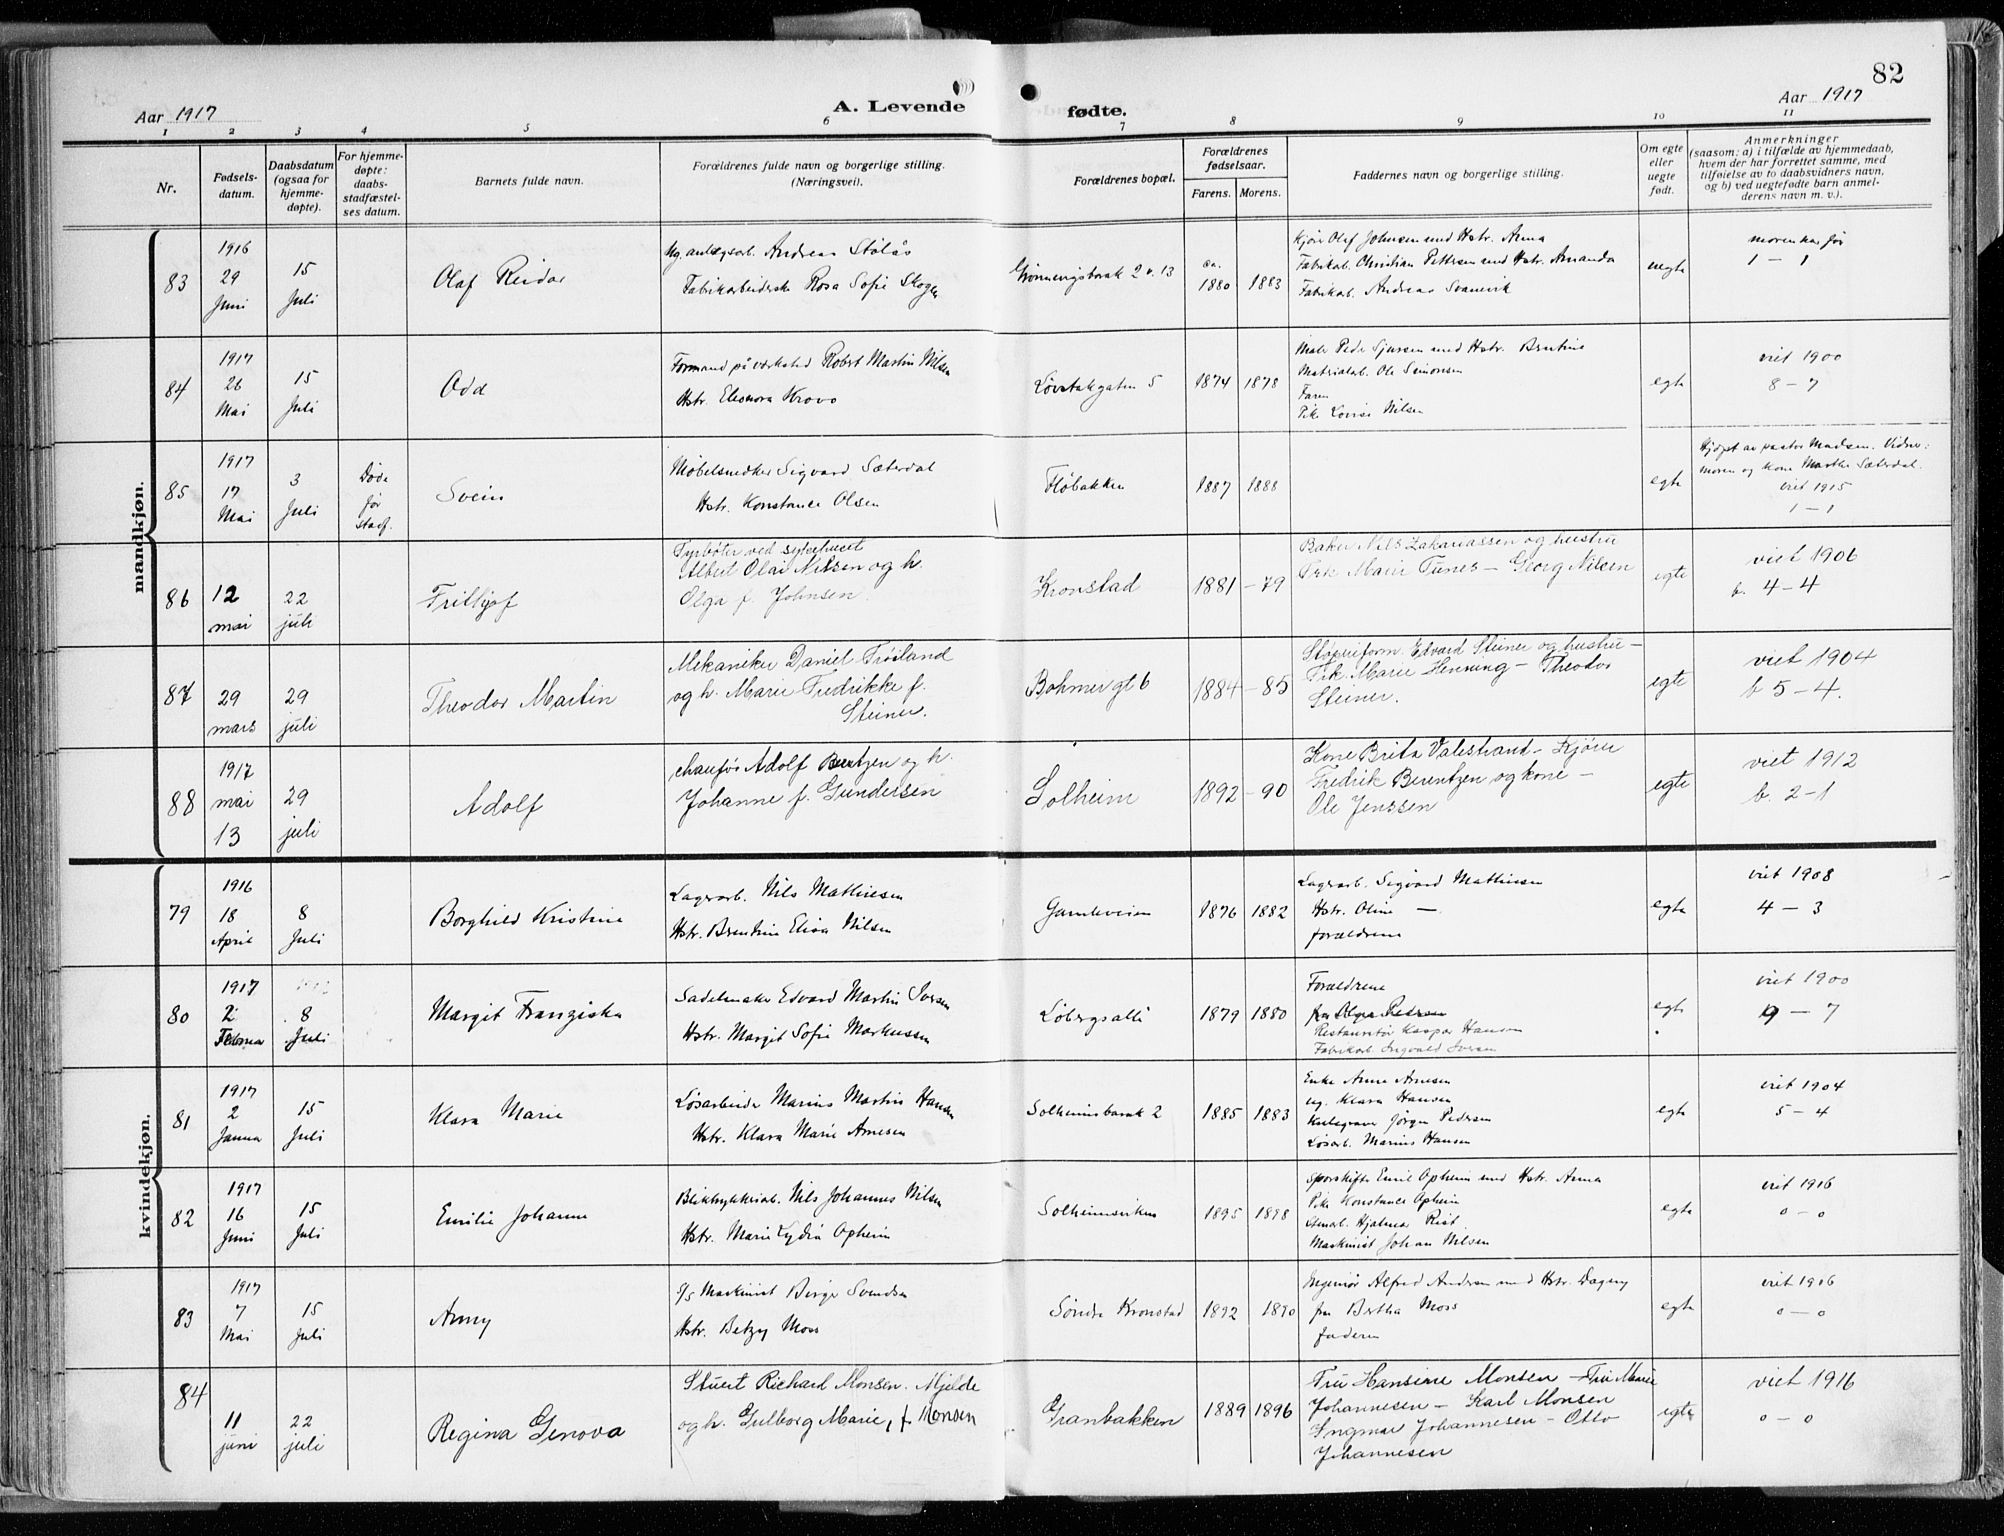 82
Aar 1917
A. Levende fødte.
Aar 1917
1 2 3 4 5 6 7 8 9 10 11
Nr.
Fødsels-
datum.
Daabsdatum
(ogsaa for
hjemme-
døpte).
For hjemme-
døpte:
daabs-
stadfæstel-
ses datum.
Barnets fulde navn.
Forældrenes fulde navn og borgerlige stilling.
(Næringsvei).
Forældrenes bopæl.
Forældrenes
fødselsaar.
Farens. Morens.
Faddernes navn og borgerlige stilling.
Om egte
eller
uegte
født.
Anmerkninger
(saasom: a) i tilfælde av hjemmedaab,
hvem der har forrettet samme, med
tilføielse av to daabsvidners navn,
og b) ved uegtefødte barn anmel-
derens navn m. v.).
mandkjøn.
83
1916
29
Juni
15
Juli
Olaf Reidar
Ug. anlægsarb. Andreas Stølås
Fabrikarbeiderske Rosa Sofie Skogen
2 v. 13
ca.
1880 1883
Kjører Olaf Johnsen med Hstr. Anna
Fabrikarb. Christian Pettersen med Hstr. Amanda
Fabrikarb. Andreas Svanevik
uegte
moren har før
1 – 1
84
1917
26
Mai
15
Juli
Odd
Formand på værksted Robert Martin Nilsen
Hstr. Eleonora Krovo
Løvstakgaten 5
1874 1878
Maler Peder Sjursen med Hstr. Berntine
Matrialarb. Ole Simonsen
Faren
Pik. Lovise Nilsen
egte
viet 1900
8 – 7
85
1917
17
Mai
3
Juli
Døde
før
stadf.
Svein
Møbelsnedker Sigvard Sæterdal
Hstr. Konstance Olsen
Fløbakken
1887 1888
egte
Hjdpt av pastor Madsen. Vidner:
moren og kone Marthe Sæterdal.
viet 1915
1 – 1
86
12
mai
22
juli
Frithjof
Fyrbøter ved sykehuset
Albert Olai Nilsen og h.
Olga f. Johnsen.
Kronstad
1881 – 79
Baker Nils Zakariassen og hustru
Frk. Marie Tunes – Georg Nilsen
egte
viet 1906
b. 4 – 4
87
29
mars
29
juli
Theodor Martin
Mekaniker Daniel Frøiland
og h. Marie Fredrikke f.
Steiner.
Bøhmergt 6
1884 – 85
Støperiform. Edvard Steiner og hustru –
Frk. Marie Henning – Theodor
Steiner.
egte
viet 1904
b 5 – 4.
88
1917
mai
13
29
juli
Adolf
chaufør Adolf Berntzen og h.
Johanne f. Gundersen
Solheim
1892 – 90
Kone Brita Valestrand – Kjører
Fredrik Berentzen og kone –
Ole Jenssen
egte
viet 1912
b. 2 – 1
kvindekjøn.
79
1916
18
April
8
Juli
Borghild Kristine
Lagerarb. Nils Mathiesen
Hstr. Berntine Elisa Nilsen
Gamleveien
1876 1882
Lagerarb. Sigvard Mathiesen
Hstr. Oline —
forældrene
egte
viet 1908
4 – 3
80
1917
2
Februar
8
Juli
Margit Franziska
Sadelmaker Edvard Martin Iversen
Hstr. Margit Sofie Markussen
Løbergsallé
1879 1880
Forældrene
fru Olga Petersen
Restauratør Kaspar Hansen
Fabrikarb. Ingvald Iversen
egte
viet 1900
9 – 7
81
1917
2
Januar
15
Juli
Klara Marie
Løsarbeider Marius Martin Hansen
Hstr. Klara Marie Arnesen
Solheimsbarak 2
1885 1883
Enke Anne Arnesen
ug. Klara Hansen
Jørgen Pedersen
Løsarb. Marius Hansen
egte
viet 1904
5 – 4
82
1917
16
Juni
15
Juli
Emilie Johanne
Bliktrykkeriarb. Nils Johannes Nilsen
Hstr. Marie Lydia Opheim
Solheimsviken
1895 1898
Sporskifter Emil Opheim med Hstr. Anna
Pike Konstance Opheim
Hjalmar Rist
Maskinist Johan Nilsen
egte
viet 1916
0 – 0
83
1917
7
Mai
15
Juli
Anny
S/s Maskinist Birger Svendsen
Hstr. Betzy Moss
Søndre Kronstad
1892 1890
Ingeniør Alfred Andersen med Hstr. Dagny
fru Bertha Moss
faderen
egte
viet 1916
0 – 0
84
11
juni
22
juli
Regina Genova
Stuert Richard Monsen. Mjelde
og h. Gulborg Marie, f. Monsen
Granbakken
1889 1896
Fru Hansine Monsen – Fru Marie
Johannesen – Karl Monsen
Ingmar Johannesen – Otto
Johannesen
egte
viet 1916
0 – 0